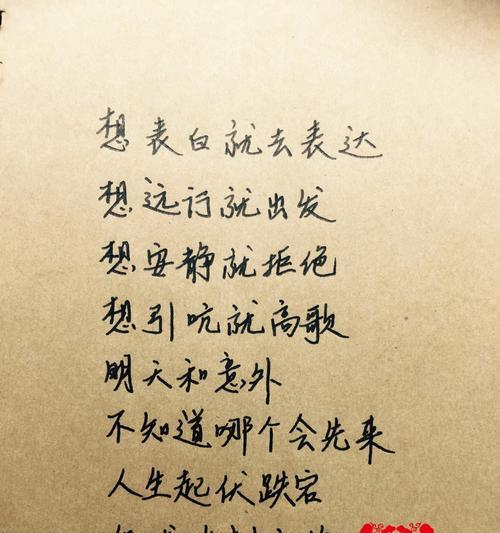 想表白就去表达
想远行就出发
想安静就拒绝
想引吭就高歌
明天和意外
不知道哪个会先来
人生起伏跌宕